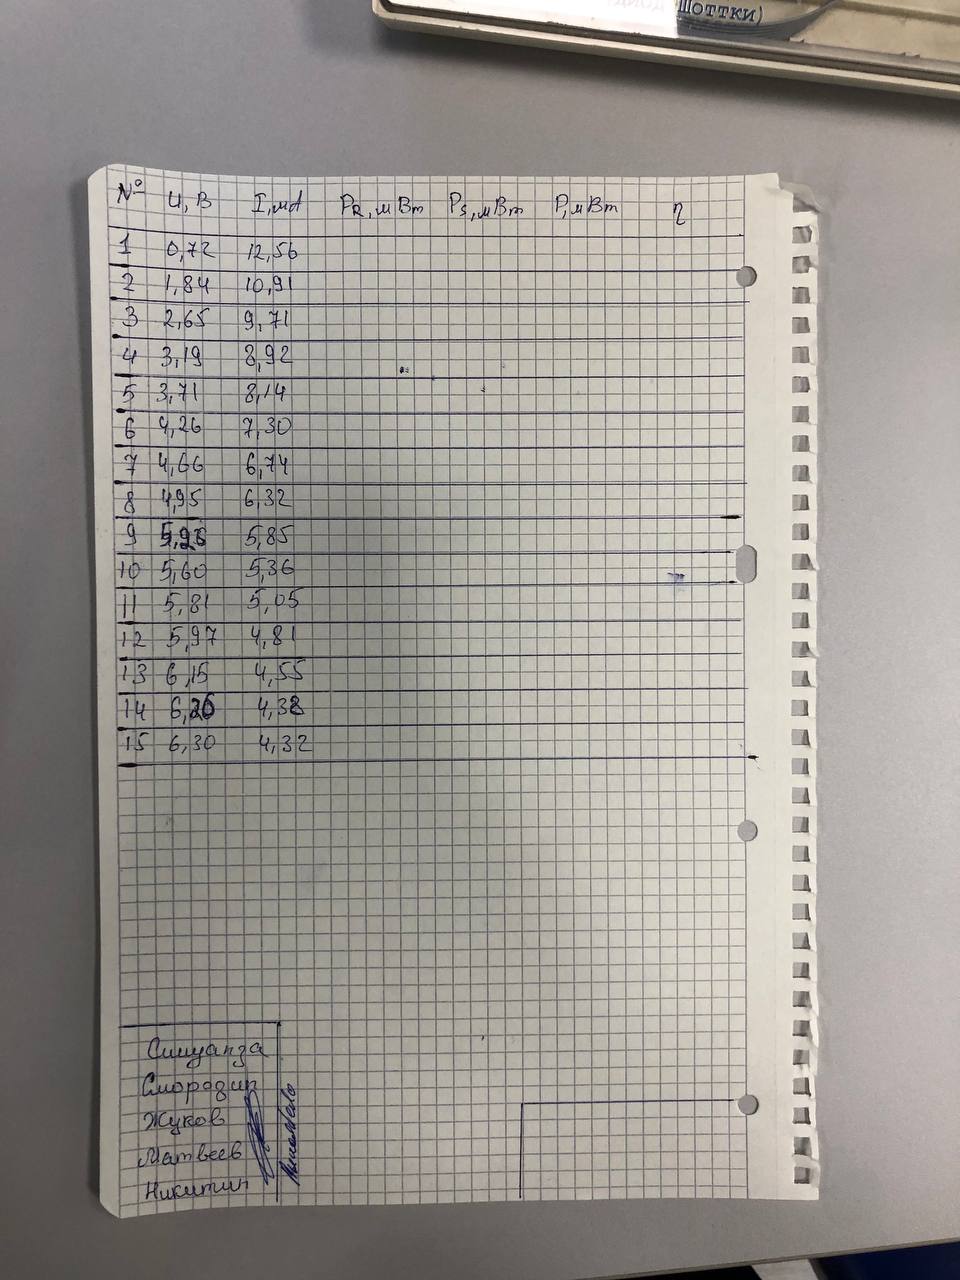 ДИОД ШОТТКИ)
№ U, В I, мА PR, мВт PS, мВт P, мВт η
1 0,72 12,56
2 1,84 10,91
3 2,65 9,71
4 3,19 8,92
5 3,71 8,14
6 4,26 7,30
7 4,66 6,74
8 4,95 6,32
9 5,26 5,85
10 5,60 5,36
11 5,81 5,05
12 5,97 4,81
13 6,15 4,55
14 6,26 4,38
15 6,30 4,32
Симуанза
Смородин
Жуков
Матвеев
Никитин